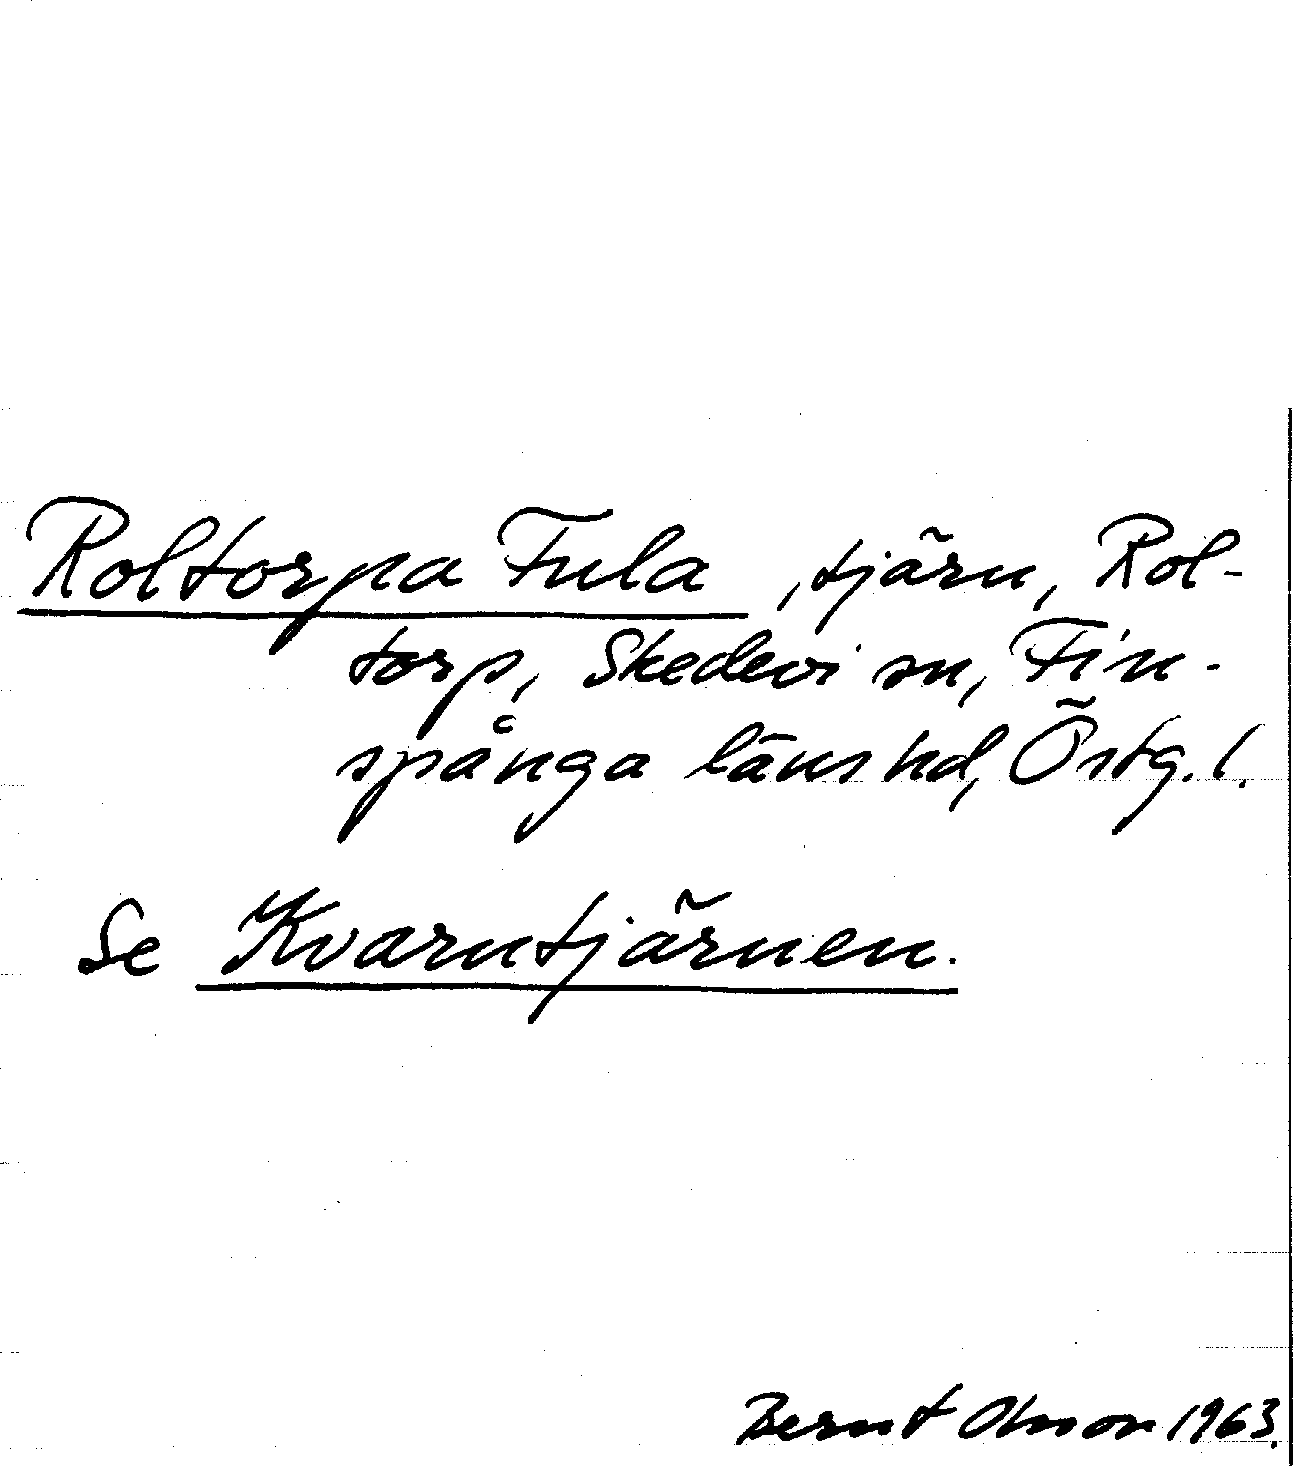 Roltorpa Fula, tjärn, Rol-
torp, Skedevi sn, Fin-
spånga läns hd, Östg. l.
Se Kvarntjärnen.
Bernt Olsson 1963.